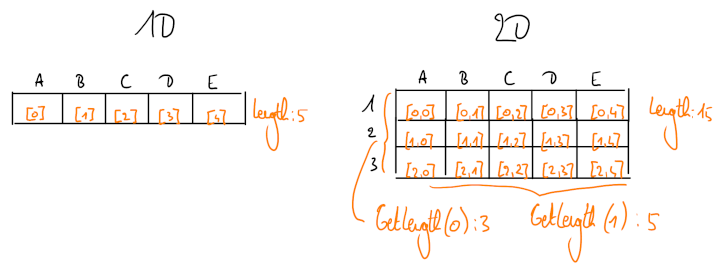 1D
A B C D E
[0] [1] [2] [3] [4] Length: 5
2D
A B C D E
1 [0,0] [0,1] [0,2] [0,3] [0,4] Length: 15
2 [1,0] [1,1] [1,2] [1,3] [1,4]
3 [2,0] [2,1] [2,2] [2,3] [2,4]
GetLength(0): 3 GetLength(1): 5